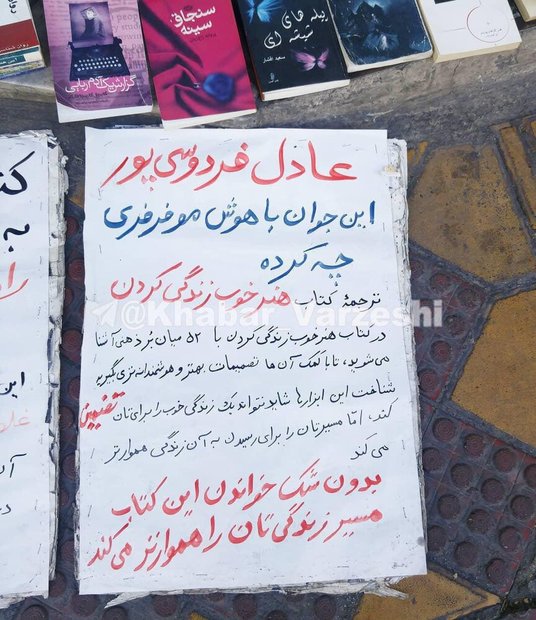 گزارش یک آدم ربایی
سنجاق
سینه
پیله های
شیشه ای
عادل فردوسی پور
این جوان باهوش موفرفری
چه کرده
ترجمهٔ کتاب هنر خوب زندگی کردن
در کتاب هنر خوب زندگی کردن با ۵۲ میان بُر ذهنی آشنا
می شوید، تا با کمک آن ها تصمیمات بهتر و هوشمندانه تری بگیرید
شناخت این ابزارها شاید نتواند یک زندگی خوب را برای تان تضمین
کند، امّا مسیرتان را برای رسیدن به آن زندگی هموارتر
می کند
بدون شک خواندن این کتاب
مسیر زندگی تان را هموارتر می کند
@Khabar_Varzeshi